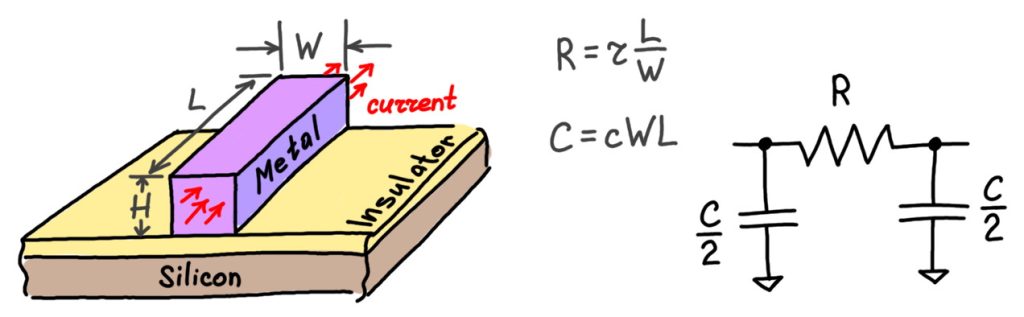 W
L
current
H
Metal
Insulator
Silicon
R = r L/W
C = cWL
R
C/2
C/2